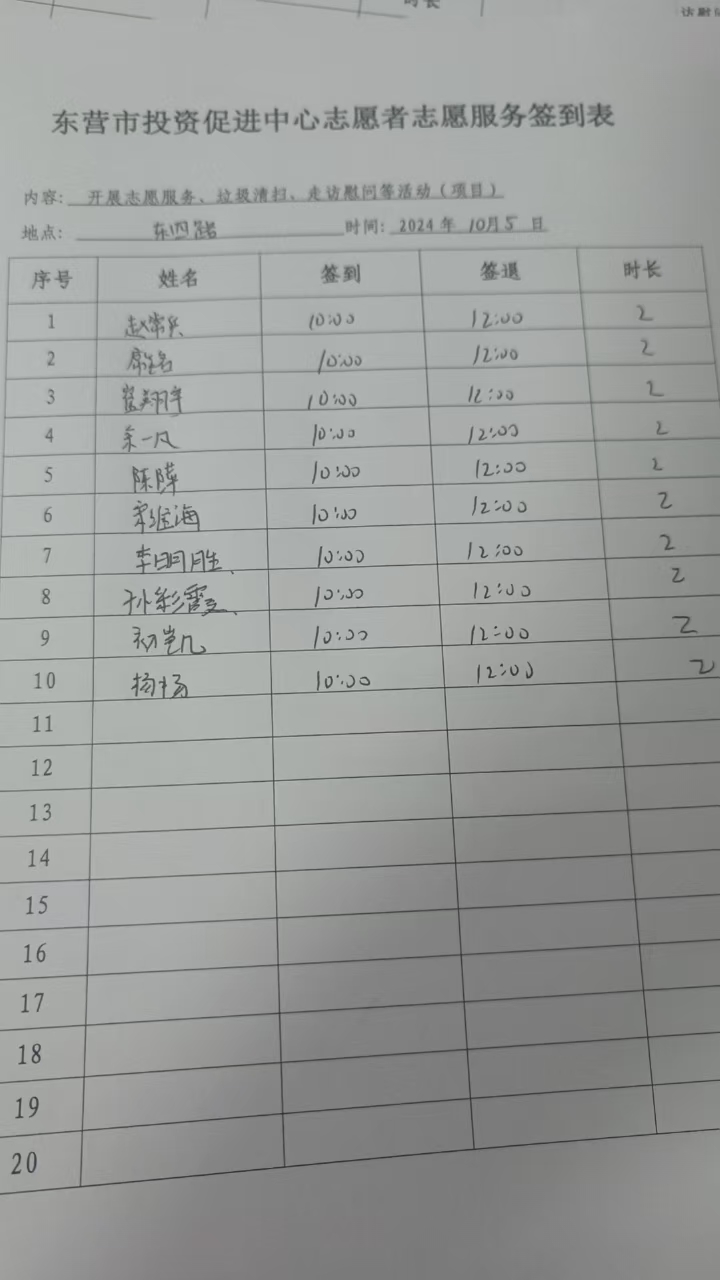 时长
访慰问
东营市投资促进中心志愿者志愿服务签到表
内容: 开展志愿服务、垃圾清扫、走访慰问等活动（项目）
地点: 东四路 时间: 2024 年 10月5 日
序号 姓名 签到 签退 时长
1 10:00 12:00 2
2 10:00 12:00 2
3 崔翔宇 10:00 12:00 2
4 余一凡 10:00 12:00 2
5 10:00 12:00 2
6 10:00 12:00 2
7 李明胜 10:00 12:00 2
8 孙彩霞 10:00 12:00 2
9 初凯凡 10:00 12:00 2
10 杨杨 10:00 12:00 2
11
12
13
14
15
16
17
18
19
20